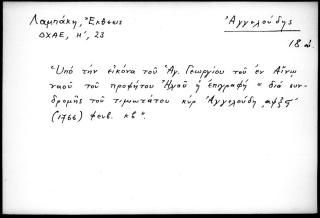 Λαμπάκη, Ἔκθεσις
ΔΧΑΕ, Η', 23
Ἀγγελούδης
18 αἰ.
"Ὑπό τήν εἰκόνα τοῦ Ἁγ. Γεωργίου τοῦ ἐν Αἴνῳ
ναοῦ τοῦ προφήτου Ἠλιού ἡ ἐπιγραφή " διά συν-
δρομῆς τοῦ τιμιωτάτου κύρ Ἀγγελούδη ͵αψξϛ'
(1766) φευβ. κβ".